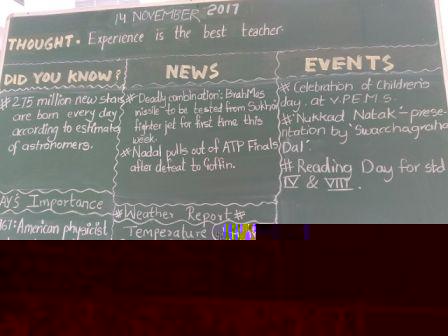 14 NOVEMBER 2017
THOUGHT. Experience is the best teacher.
DID YOU KNOW?
# 275 million new stars
are born every day
according to estimate
of astronomers.
NEWS
# Deadly combination: BrahMos
missile to be tested from Sukhoi
fighter jet for first time this
week.
# Nadal pulls out of ATP Finals
after defeat to Goffin.
EVENTS
# Celebration of Children's
day at V.P.E.M.S.
# 'Nukkad Natak' - prese-
ntation by 'Swacchagraha
Dal'.
# Reading Day for std
IV & VIII.
AY's Importance
967: American physicist
# Weather Report #
Temperature